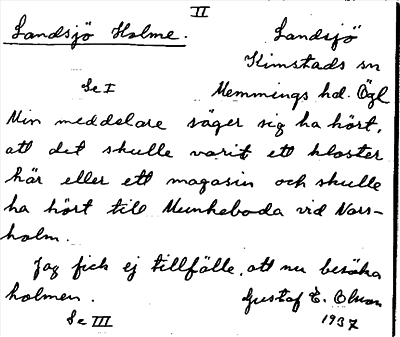 II
Landsjö Holme. Landsjö
Kimstads sn
Se I Memmings hd. Ögl
Min meddelare säger sig ha hört,
att det skulle varit ett kloster
här eller ett magasin och skulle
ha hört till Munkeboda vid Nors-
holm.
Jag fick ej tillfälle att nu besöka
holmen. Gustaf E. Olson
Se III 1937